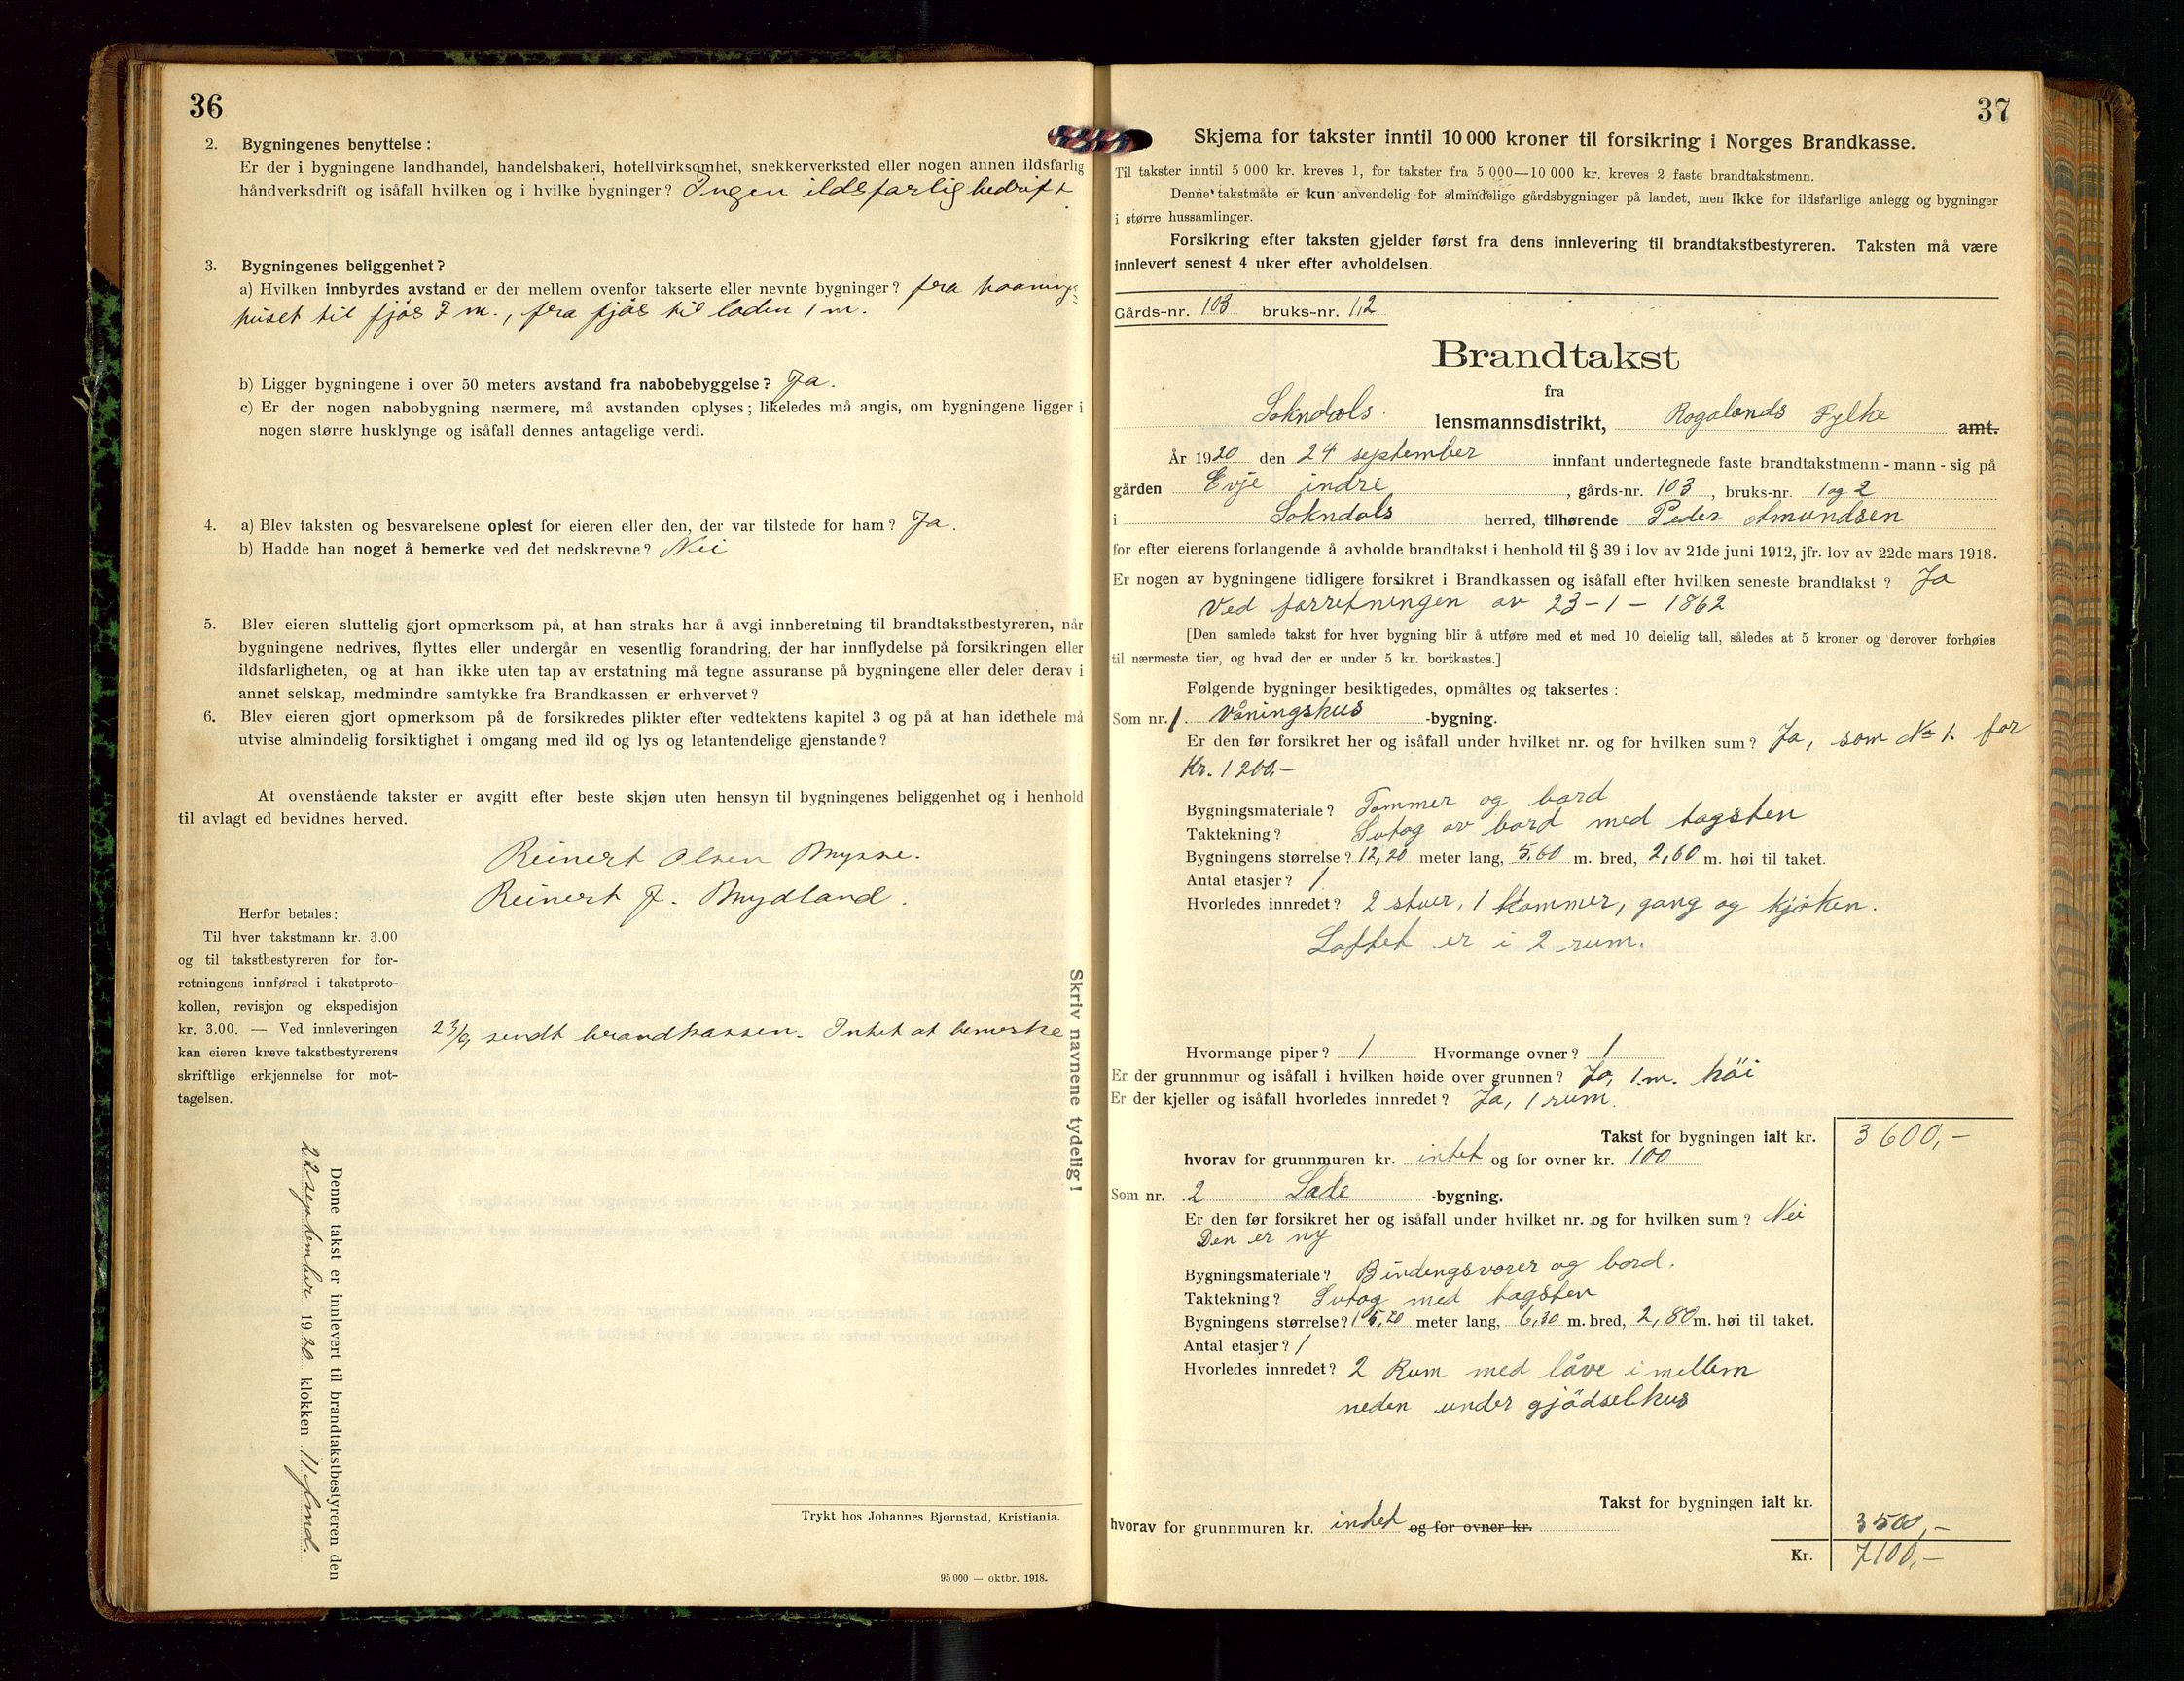 36
2. Bygningenes benyttelse:
Er der i bygningene landhandel, handelsbakeri, hotellvirksomhet, snekkerverksted eller nogen annen ildsfarlig
håndverksdrift og isåfall hvilken og i hvilke bygninger? Ingen ildsfarlig bedrift.
3. Bygningenes beliggenhet?
a) Hvilken innbyrdes avstand er der mellem ovenfor takserte eller nevnte bygninger? fra vaanings=
huset til fjøs 7 m., fra fjøs til laden 1 m.
b) Ligger bygningene i over 50 meters avstand fra nabobebyggelse? Ja.
c) Er der nogen nabobygning nærmere, må avstanden oplyses; likeledes må angis, om bygningene ligger i
nogen større husklynge og isåfall dennes antagelige verdi.
4. a) Blev taksten og besvarelsene oplest for eieren eller den, der var tilstede for ham? Ja.
b) Hadde han noget å bemerke ved det nedskrevne? Nei
5. Blev eieren sluttelig gjort opmerksom på, at han straks har å avgi innberetning til brandtakstbestyreren, når
bygningene nedrives, flyttes eller undergår en vesentlig forandring, der har innflydelse på forsikringen eller
ildsfarligheten, og at han ikke uten tap av erstatning må tegne assuranse på bygningene eller deler derav i
annet selskap, medmindre samtykke fra Brandkassen er erhvervet?
6. Blev eieren gjort opmerksom på de forsikredes plikter efter vedtektens kapitel 3 og på at han idethele må
utvise almindelig forsiktighet i omgang med ild og lys og letantendelige gjenstande?
At ovenstående takster er avgitt efter beste skjøn uten hensyn til bygningenes beliggenhet og i henhold
til avlagt ed bevidnes herved.
Reinert Olsen Mysse.
Reinert J. Mydland.
Herfor betales:
Til hver takstmann kr. 3.00
og til takstbestyreren for for-
retningens innførsel i takstproto-
kollen, revisjon og ekspedisjon
kr. 3.00. — Ved innleveringen
kan eieren kreve takstbestyrerens
skriftlige erkjennelse for mot-
tagelsen.
23/9 sendt brandkassen. Intet at bemerke
Skriv navnene tydelig!
Denne takst er innlevert til brandtakstbestyreren den
22 september 1920 klokken 11 fmd.
Trykt hos Johannes Bjørnstad, Kristiania.
95 000 — oktbr. 1918.
37
Skjema for takster inntil 10 000 kroner til forsikring i Norges Brandkasse.
Til takster inntil 5 000 kr. kreves 1, for takster fra 5 000—10 000 kr. kreves 2 faste brandtakstmenn.
Denne takstmåte er kun anvendelig for almindelige gårdsbygninger på landet, men ikke for ildsfarlige anlegg og bygninger
i større hussamlinger.
Forsikring efter taksten gjelder først fra dens innlevering til brandtakstbestyreren. Taksten må være
innlevert senest 4 uker efter avholdelsen.
Gårds-nr. 103 bruks-nr. 1,2
Brandtakst
fra
Sokndals lensmannsdistrikt, Rogalands Fylke amt.
År 1920 den 24 september innfant undertegnede faste brandtakstmenn - mann - sig på
gården Evje indre, gårds-nr. 103, bruks-nr. 1 og 2
i Sokndals herred, tilhørende Peder Amundsen
for efter eierens forlangende å avholde brandtakst i henhold til § 39 i lov av 21de juni 1912, jfr. lov av 22de mars 1918.
Er nogen av bygningene tidligere forsikret i Brandkassen og isåfall efter hvilken seneste brandtakst? Ja
Ved forretningen av 23-1-1862
[Den samlede takst for hver bygning blir å utføre med et med 10 delelig tall, således at 5 kroner og derover forhøies
til nærmeste tier, og hvad der er under 5 kr. bortkastes.]
Følgende bygninger besiktigedes, opmåltes og taksertes:
Som nr. 1. Våningshus -bygning.
Er den før forsikret her og isåfall under hvilket nr. og for hvilken sum? Ja, som No 1. for
Kr. 1200,-
Bygningsmateriale? Tømmer og bord
Taktekning? Sutag av bord med tagsten
Bygningens størrelse? 12,20 meter lang, 5,60 m. bred, 2,60 m. høi til taket.
Antal etasjer? 1
Hvorledes innredet? 2 stuer, 1 Kammer, gang og kjøken.
Loftet er i 2 rum.
Hvormange piper? 1 Hvormange ovner? 1
Er der grunnmur og isåfall i hvilken høide over grunnen? Ja, 1.m. höi
Er der kjeller og isåfall hvorledes innredet? Ja, 1 rum.
Takst for bygningen ialt kr. 3600,-
hvorav for grunnmuren kr. intet og for ovner kr. 100
Som nr. 2 Lade -bygning.
Er den før forsikret her og isåfall under hvilket nr. og for hvilken sum? Nei
Den er ny
Bygningsmateriale? Bindingsværer og bord.
Taktekning? Sutag med tagsten
Bygningens størrelse? 15,20 meter lang, 6,30 m. bred, 2,80 m. høi til taket.
Antal etasjer? 1
Hvorledes innredet? 2 Rum med låve i mellem
neden under gjödselhus
Takst for bygningen ialt kr.
hvorav for grunnmuren kr. intet og for ovner kr. 3500,-
Kr. 7100,-